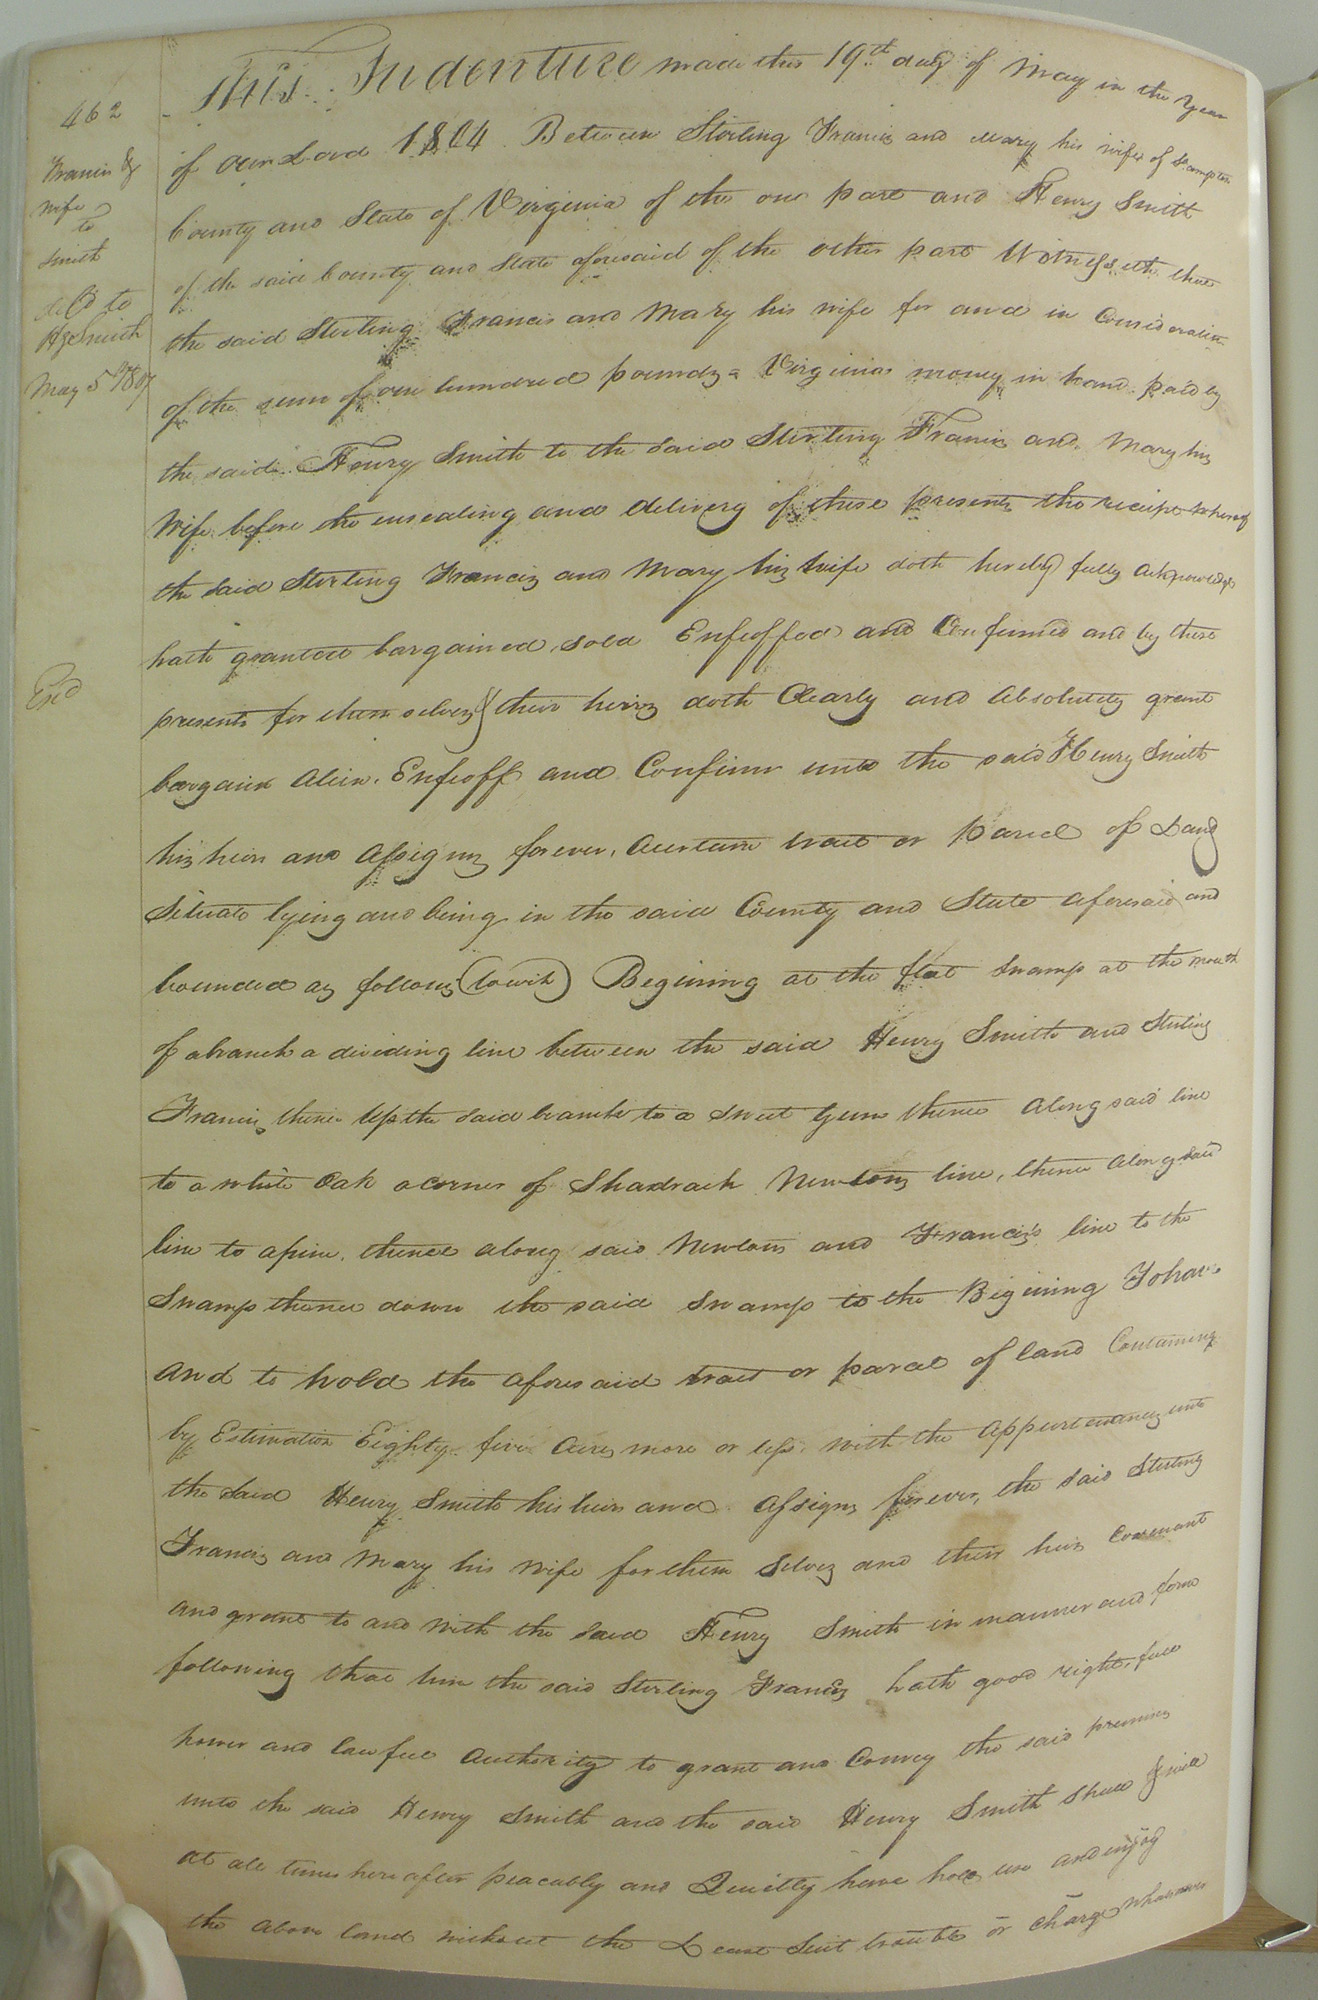 462
Francis &
wife
to
Smith
deld to
Hy Smith
May 5th 1807
Exd
This Indenture made this 19th day of May in the year
of our Lord 1804 Between Sterling Francis and Mary his wife of S.ampton
County and State of Virginia of the one part and Henry Smith
of the said County and State aforesaid of the other part Witnesseth that
the said Sterling Francis and Mary his wife for and in Consideration
of the sum of one hundred pounds Virginia money in hand paid by
the said Henry Smith to the said Sterling Francis and Mary his
Wife before the ensealing and delivery of these presents the receipt whereof
the said Sterling Francis and Mary his wife doth hereby fully acknowledge
hath granted bargained, sold Enfeoffed and Confirmed and by these
presents for them selves & their heirs doth Clearly and absolutely grant
bargain alien, Enfeoff and Confirm unto the said Henry Smith
his heirs and assigns forever, a certain tract or parcel of Land
Situate lying and being in the said County and State aforesaid and
bounded as follows (to wit) Begining at the flat Swamp at the mouth
of a branch a dividing line between the said Henry Smith and Sterling
Francis, thence Up the said branch to a Sweet Gum thence along said line
to a white Oak a corner of Shadrach Newsoms line, thence along said
line to a pine, thence along said Newsoms and Francis's line to the
Swamp thence down the said Swamp to the Begining To have
and to hold the aforesaid tract or parcel of land Containing
by Estimation Eighty five acres more or less, with the appurtenances unto
the said Henry Smith his heirs and assigns forever, the said Sterling
Francis and Mary his wife for them selves and their heirs Covenant
and grant to and with the said Henry Smith in manner and form
following that him the said Sterling Francis hath good right, full
power and lawful authority to grant and Convey the said premises
unto the said Henry Smith and the said Henry Smith shall & will
at all times hereafter peacably and Quietly have hold use and enjoy
the above land without the Least Suit trouble or Charge whatsoever